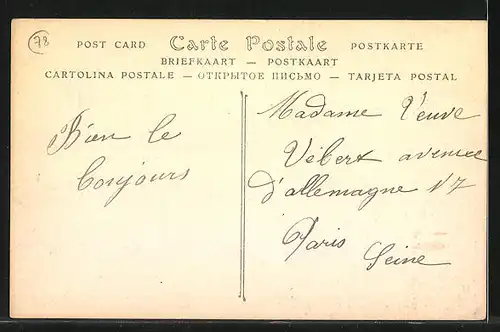 78
POST CARD Carte Postale POSTKARTE
BRIEFKAART — POSTKAART
CARTOLINA POSTALE — ОТКРЫТОЕ ПИСЬМО — TARJETA POSTAL
Bien le
bonjours
Madame Veuve
Vébert avenue
d'allemagne 17
Paris
Seine